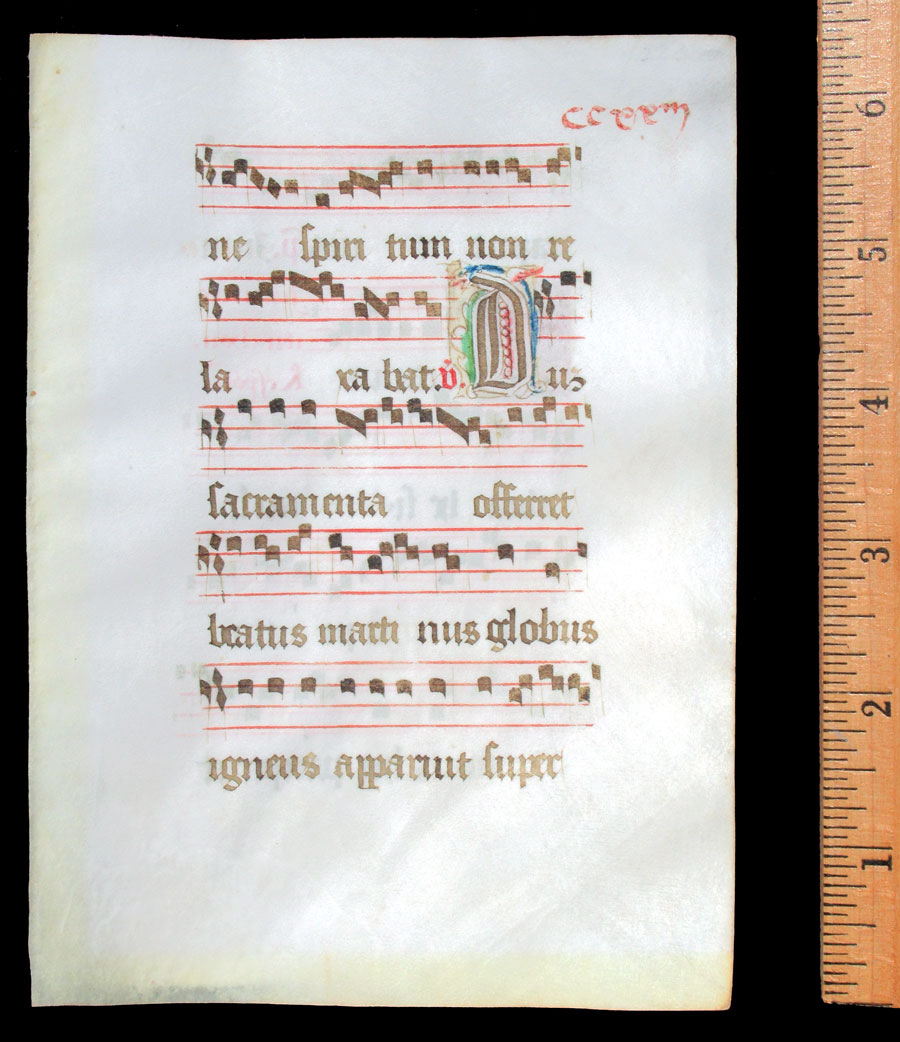 ccxxiij
ne spiri tum non re
la xa bat. V. Duz
sacramenta offerret
beatus marti nus globus
igneus apparuit super
6
5
4
3
2
1